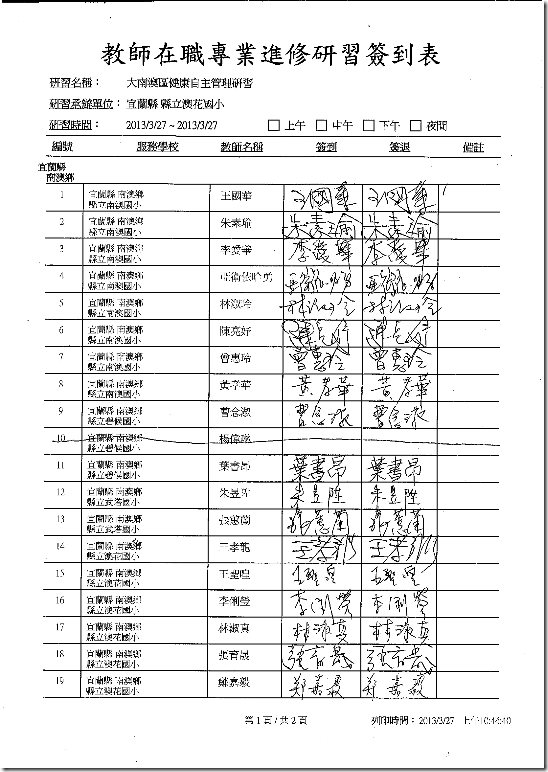 教師在職專業進修研習簽到表
研習名稱： 大南澳區健康自主管理研習
研習承辦單位： 宜蘭縣 縣立澳花國小
研習時間： 2013/3/27 ~ 2013/3/27 □ 上午 □ 中午 □ 下午 □ 夜間
編號 服務學校 教師名稱 簽到 簽退 備註
宜蘭縣
南澳鄉
1 宜蘭縣 南澳鄉 王國華 王國華 王國華
縣立南澳國小
2 宜蘭縣 南澳鄉 朱素瑜 朱素瑜 朱素瑜
縣立南澳國小
3 宜蘭縣 南澳鄉 李愛華 李愛華 李愛華
縣立南澳國小
4 宜蘭縣 南澳鄉
縣立南澳國小
5 宜蘭縣 南澳鄉 林淑玲
縣立南澳國小
6 宜蘭縣 南澳鄉
縣立南澳國小
7 宜蘭縣 南澳鄉 曾惠玲 曾惠玲 曾惠玲
縣立南澳國小
8 宜蘭縣 南澳鄉 黃孝華 黃孝華 黃孝華
縣立南澳國小
9 宜蘭縣 南澳鄉
縣立碧候國小
10 宜蘭縣 南澳鄉
縣立碧候國小
11 宜蘭縣 南澳鄉 葉書昂 葉書昂 葉書昂
縣立碧候國小
12 宜蘭縣 南澳鄉 朱昱陞 朱昱陞 朱昱陞
縣立武塔國小
13 宜蘭縣 南澳鄉
縣立武塔國小
14 宜蘭縣 南澳鄉 王孝龍
縣立澳花國小
15 宜蘭縣 南澳鄉
縣立澳花國小
16 宜蘭縣 南澳鄉 李俐瑩
縣立澳花國小
17 宜蘭縣 南澳鄉 林淑真 林淑真 林淑真
縣立澳花國小
18 宜蘭縣 南澳鄉 張育晟
縣立澳花國小
19 宜蘭縣 南澳鄉 鄭嘉毅 鄭嘉毅 鄭嘉毅
縣立澳花國小
第 1 頁 / 共 2 頁 列印時間： 2013/3/27 上午 10:44:40